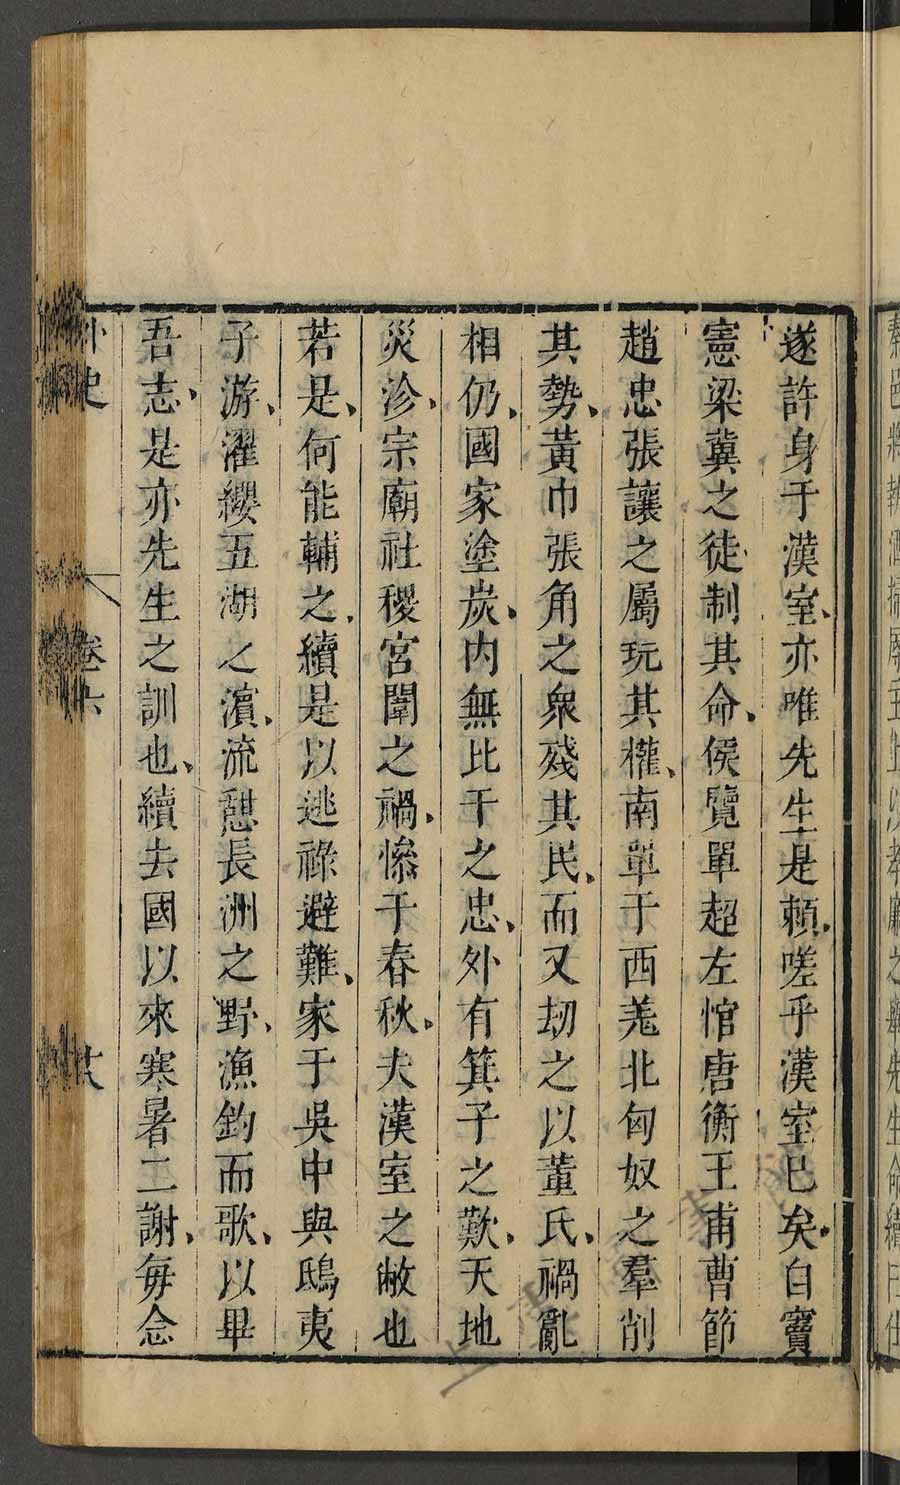 遂許身于漢室、亦唯先生是賴、嗟乎漢室巳矣、自竇
憲梁冀之徒、制其命、侯覽單超左悺唐衡王甫曹節
趙忠張讓之屬玩其權、南單于西羗北匈奴之羣削
其勢、黃巾張角之衆殘其民、而又刼之以董氏、禍亂
相仍、國家塗炭、内無比干之忠、外有箕子之歎、天地
災沴、宗廟社稷宮闈之禍、慘于春秋、夫漢室之敝也
若是、何能輔之、續是以逃祿避難、家于吳中與鴟夷
子游、濯纓五湖之濱、流憇長洲之野、漁釣而歌、以畢
吾志、是亦先生之訓也、續去國以來寒暑二謝、每念
外史
卷六